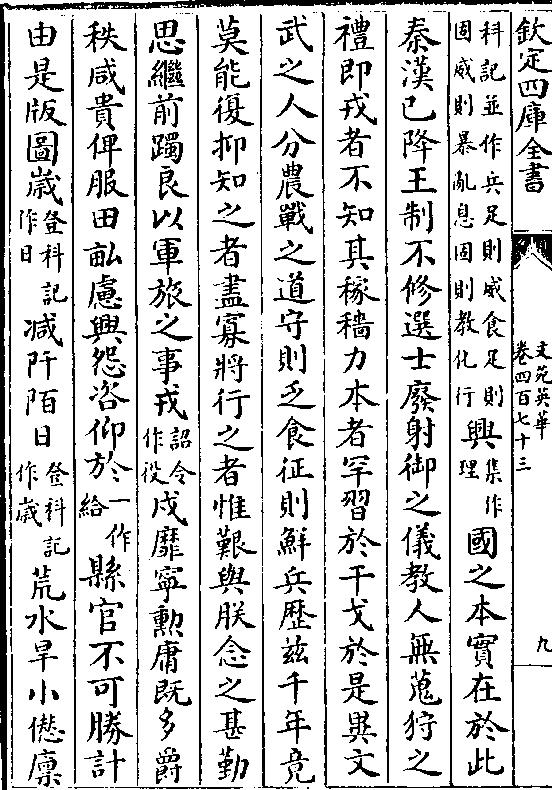 欽定四庫全書
文苑英華
卷四百七十三
九
科記並作兵足則威食足則
固威則暴亂息固則教化行
興
集作
理
國之本實在於此
秦漢已降王制不修選士廢射御之儀教人無蒐狩之
禮即戎者不知其稼穡力本者罕習於干戈於是異文
武之人分農戰之道守則乏食征則鮮兵歷兹千年竟
莫能復抑知之者盡寡將行之者惟艱與朕念之甚勤
思繼前躅良以軍旅之事戎
詔令
作役
戍靡寧勲庸既多爵
秩咸貴俾服田畝慮興怨咨仰於
一作
給
縣官不可勝計
由是版圖嵗
登科記
作日
減阡陌日
登科記
作嵗
荒水旱小僽廩